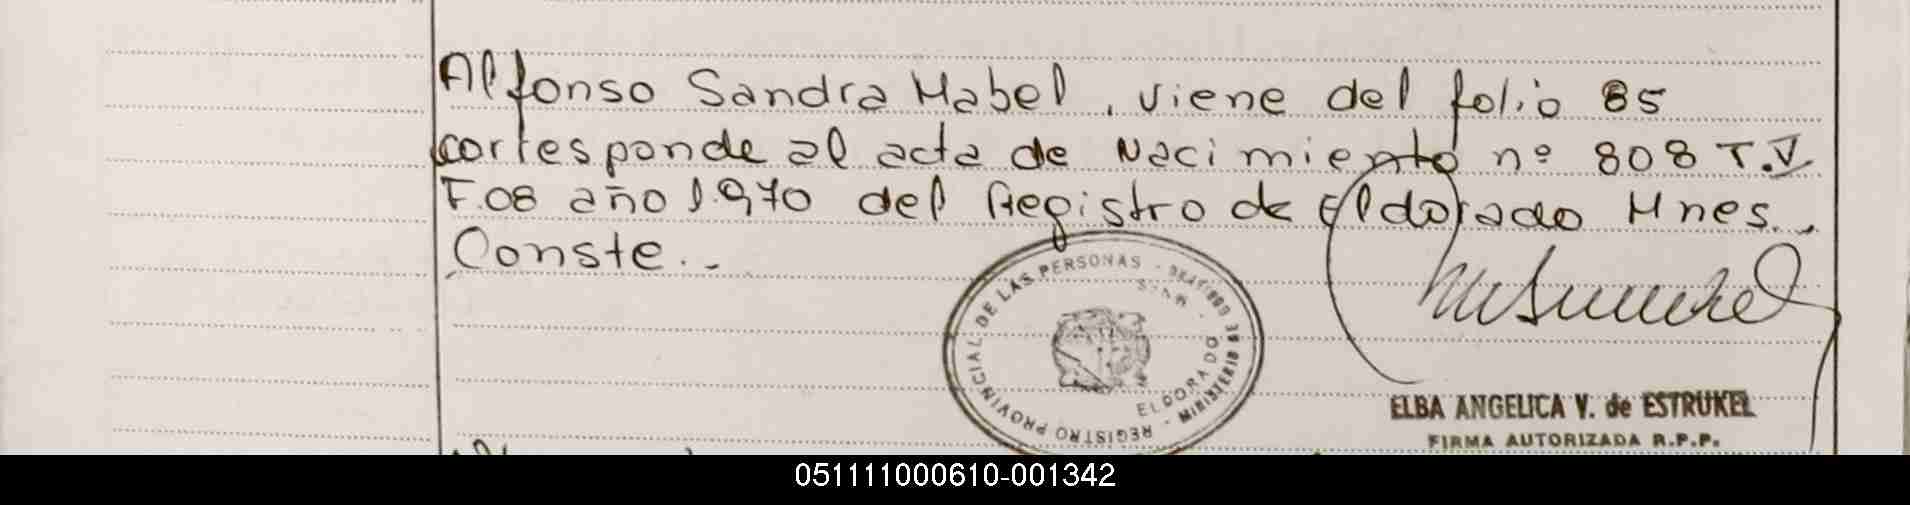 Alfonso Sandra Mabel. viene del folio 85
corresponde al acta de Nacimiento nº 808 T.V
F.08 año 1.970 del Registro de Eldorado Mnes..
Conste.-
REGISTRO PROVINCIAL DE LAS PERSONAS - MINISTERIO DE GOBIERNO
ELDORADO
ELBA ANGELICA V. de ESTRUKEL
FIRMA AUTORIZADA R.P.P.
051111000610-001342